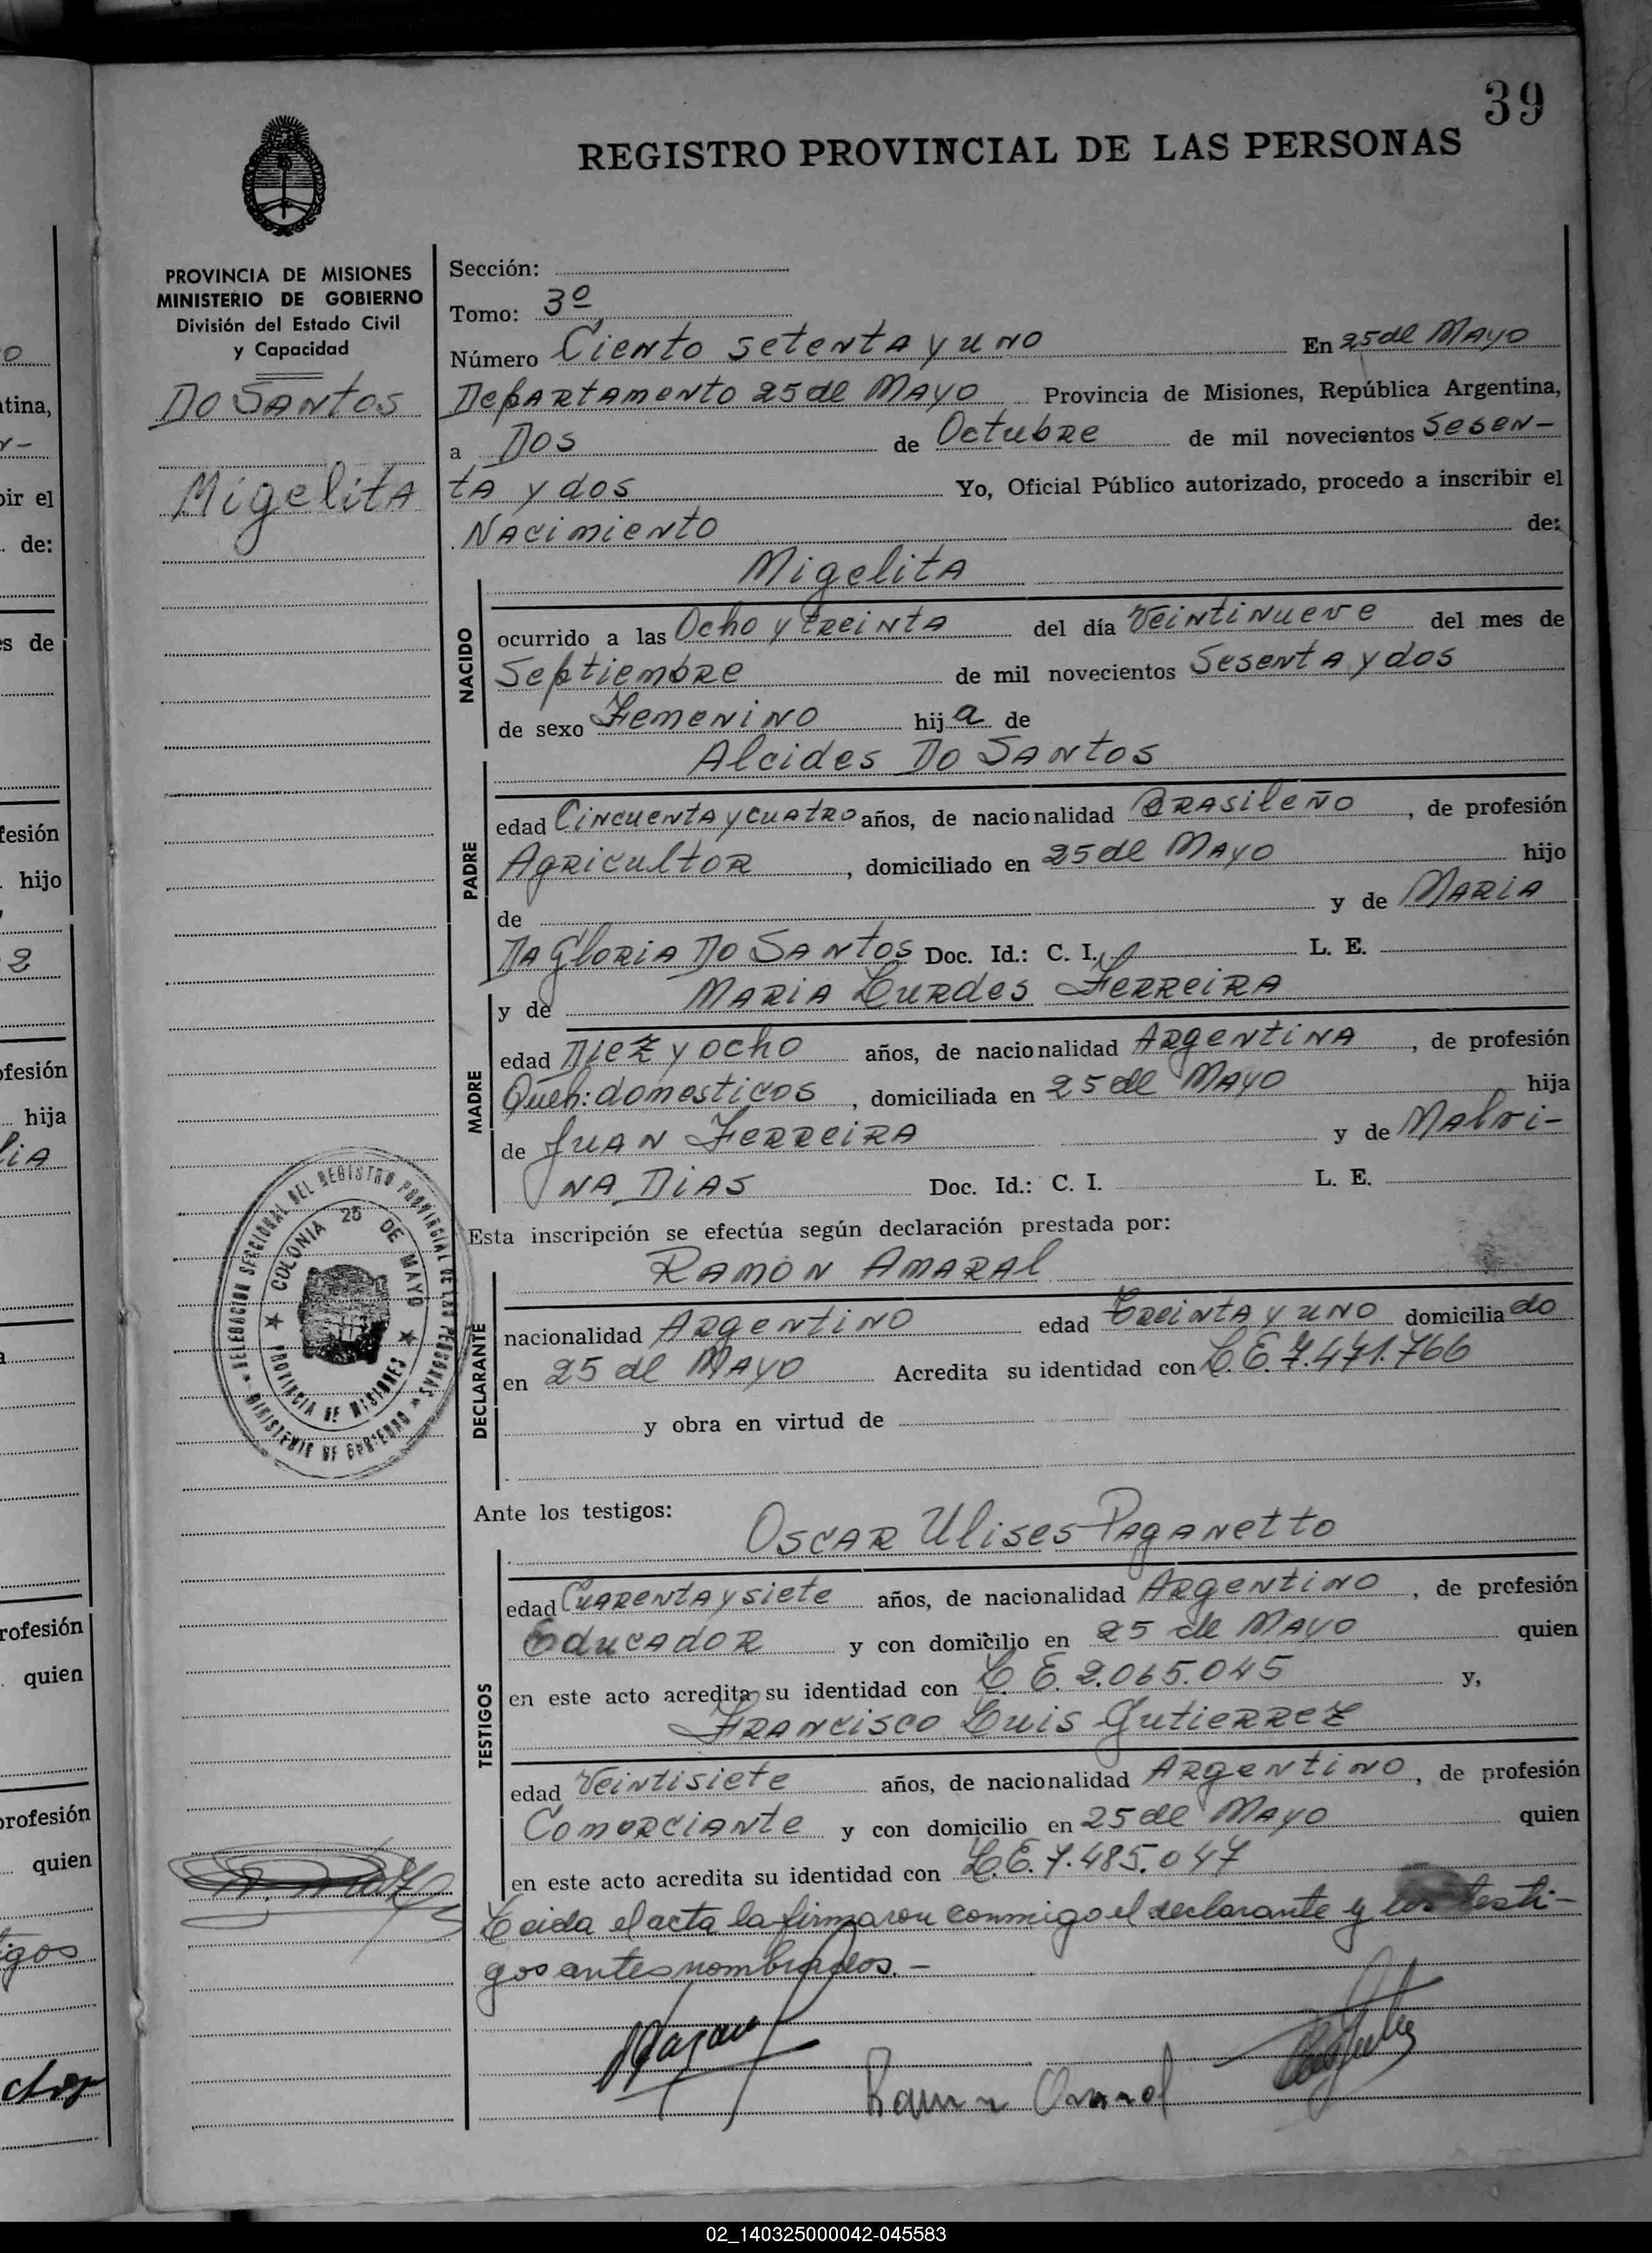 39
REGISTRO PROVINCIAL DE LAS PERSONAS
PROVINCIA DE MISIONES
MINISTERIO DE GOBIERNO
División del Estado Civil
y Capacidad
Do Santos
Migelita
Sección:
Tomo: 3º
Número Ciento setenta y uno En 25 de Mayo
Departamento 25 de Mayo Provincia de Misiones, República Argentina,
a Dos de Octubre de mil novecientos Sesen-
ta y dos Yo, Oficial Público autorizado, procedo a inscribir el
Nacimiento de:
Migelita
NACIDO
ocurrido a las Ocho y treinta del día Veintinueve del mes de
Septiembre de mil novecientos Sesenta y dos
de sexo Femenino hija de
Alcides Do Santos
PADRE
edad Cincuenta y cuatro años, de nacionalidad Brasileño, de profesión
Agricultor, domiciliado en 25 de Mayo hijo
de y de Maria
Da Gloria Do Santos Doc. Id.: C. I. L. E.
y de Maria Lurdes Ferreira
MADRE
edad Diez y ocho años, de nacionalidad Argentina, de profesión
Queh: domesticos, domiciliada en 25 de Mayo hija
de Juan Ferreira y de Malvi-
na Dias Doc. Id.: C. I. L. E.
Esta inscripción se efectúa según declaración prestada por:
Ramón Amaral
DECLARANTE
nacionalidad Argentino edad Treinta y uno domiciliado
en 25 de Mayo Acredita su identidad con L.E. 7.471.766
y obra en virtud de
Ante los testigos:
Oscar Ulises Paganetto
TESTIGOS
edad Cuarenta y siete años, de nacionalidad Argentino, de profesión
Educador y con domicilio en 25 de Mayo quien
en este acto acredita su identidad con L. E. 2.065.045 y,
Francisco Luis Gutierrez
edad Veintisiete años, de nacionalidad Argentino, de profesión
Comerciante y con domicilio en 25 de Mayo quien
en este acto acredita su identidad con L.E. 7.485.047
Leida el acta la firmaron conmigo el declarante y los testi-
gos antes nombrados.-
Ramon Amaral
DELEGACION SECCIONAL DEL REGISTRO PROVINCIAL DE LAS PERSONAS
MINISTERIO DE GOBIERNO
COLONIA 25 DE MAYO
PROVINCIA DE MISIONES
tina,
bir el
de:
s de
fesión
hijo
2
ofesión
hija
lia
rofesión
quien
profesión
quien
igos
02_140325000042-045583